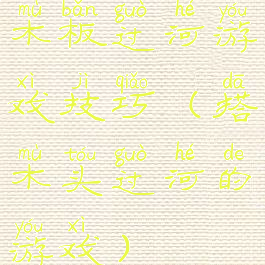 mù bǎn guò hé yóu
木板过河游
xì jì qiǎo dā
戏技巧（搭
mù tóu guò hé de
木头过河的
yóu xì
游戏）